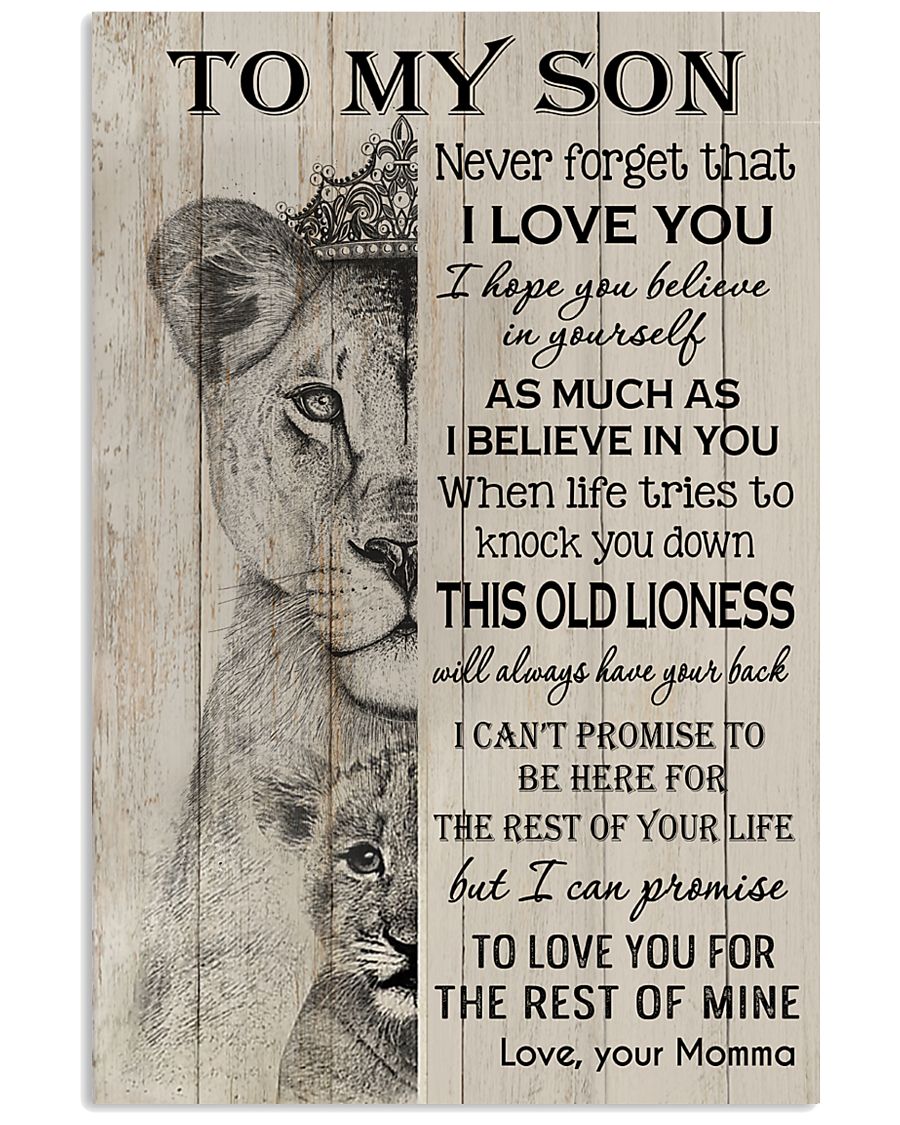 TO MY SON
Never forget that
I LOVE YOU
I hope you believe
in yourself
AS MUCH AS
I BELIEVE IN YOU
When life tries to
knock you down
THIS OLD LIONESS
will always have your back
I CAN'T PROMISE TO
BE HERE FOR
THE REST OF YOUR LIFE
but I can promise
TO LOVE YOU FOR
THE REST OF MINE
Love, your Momma